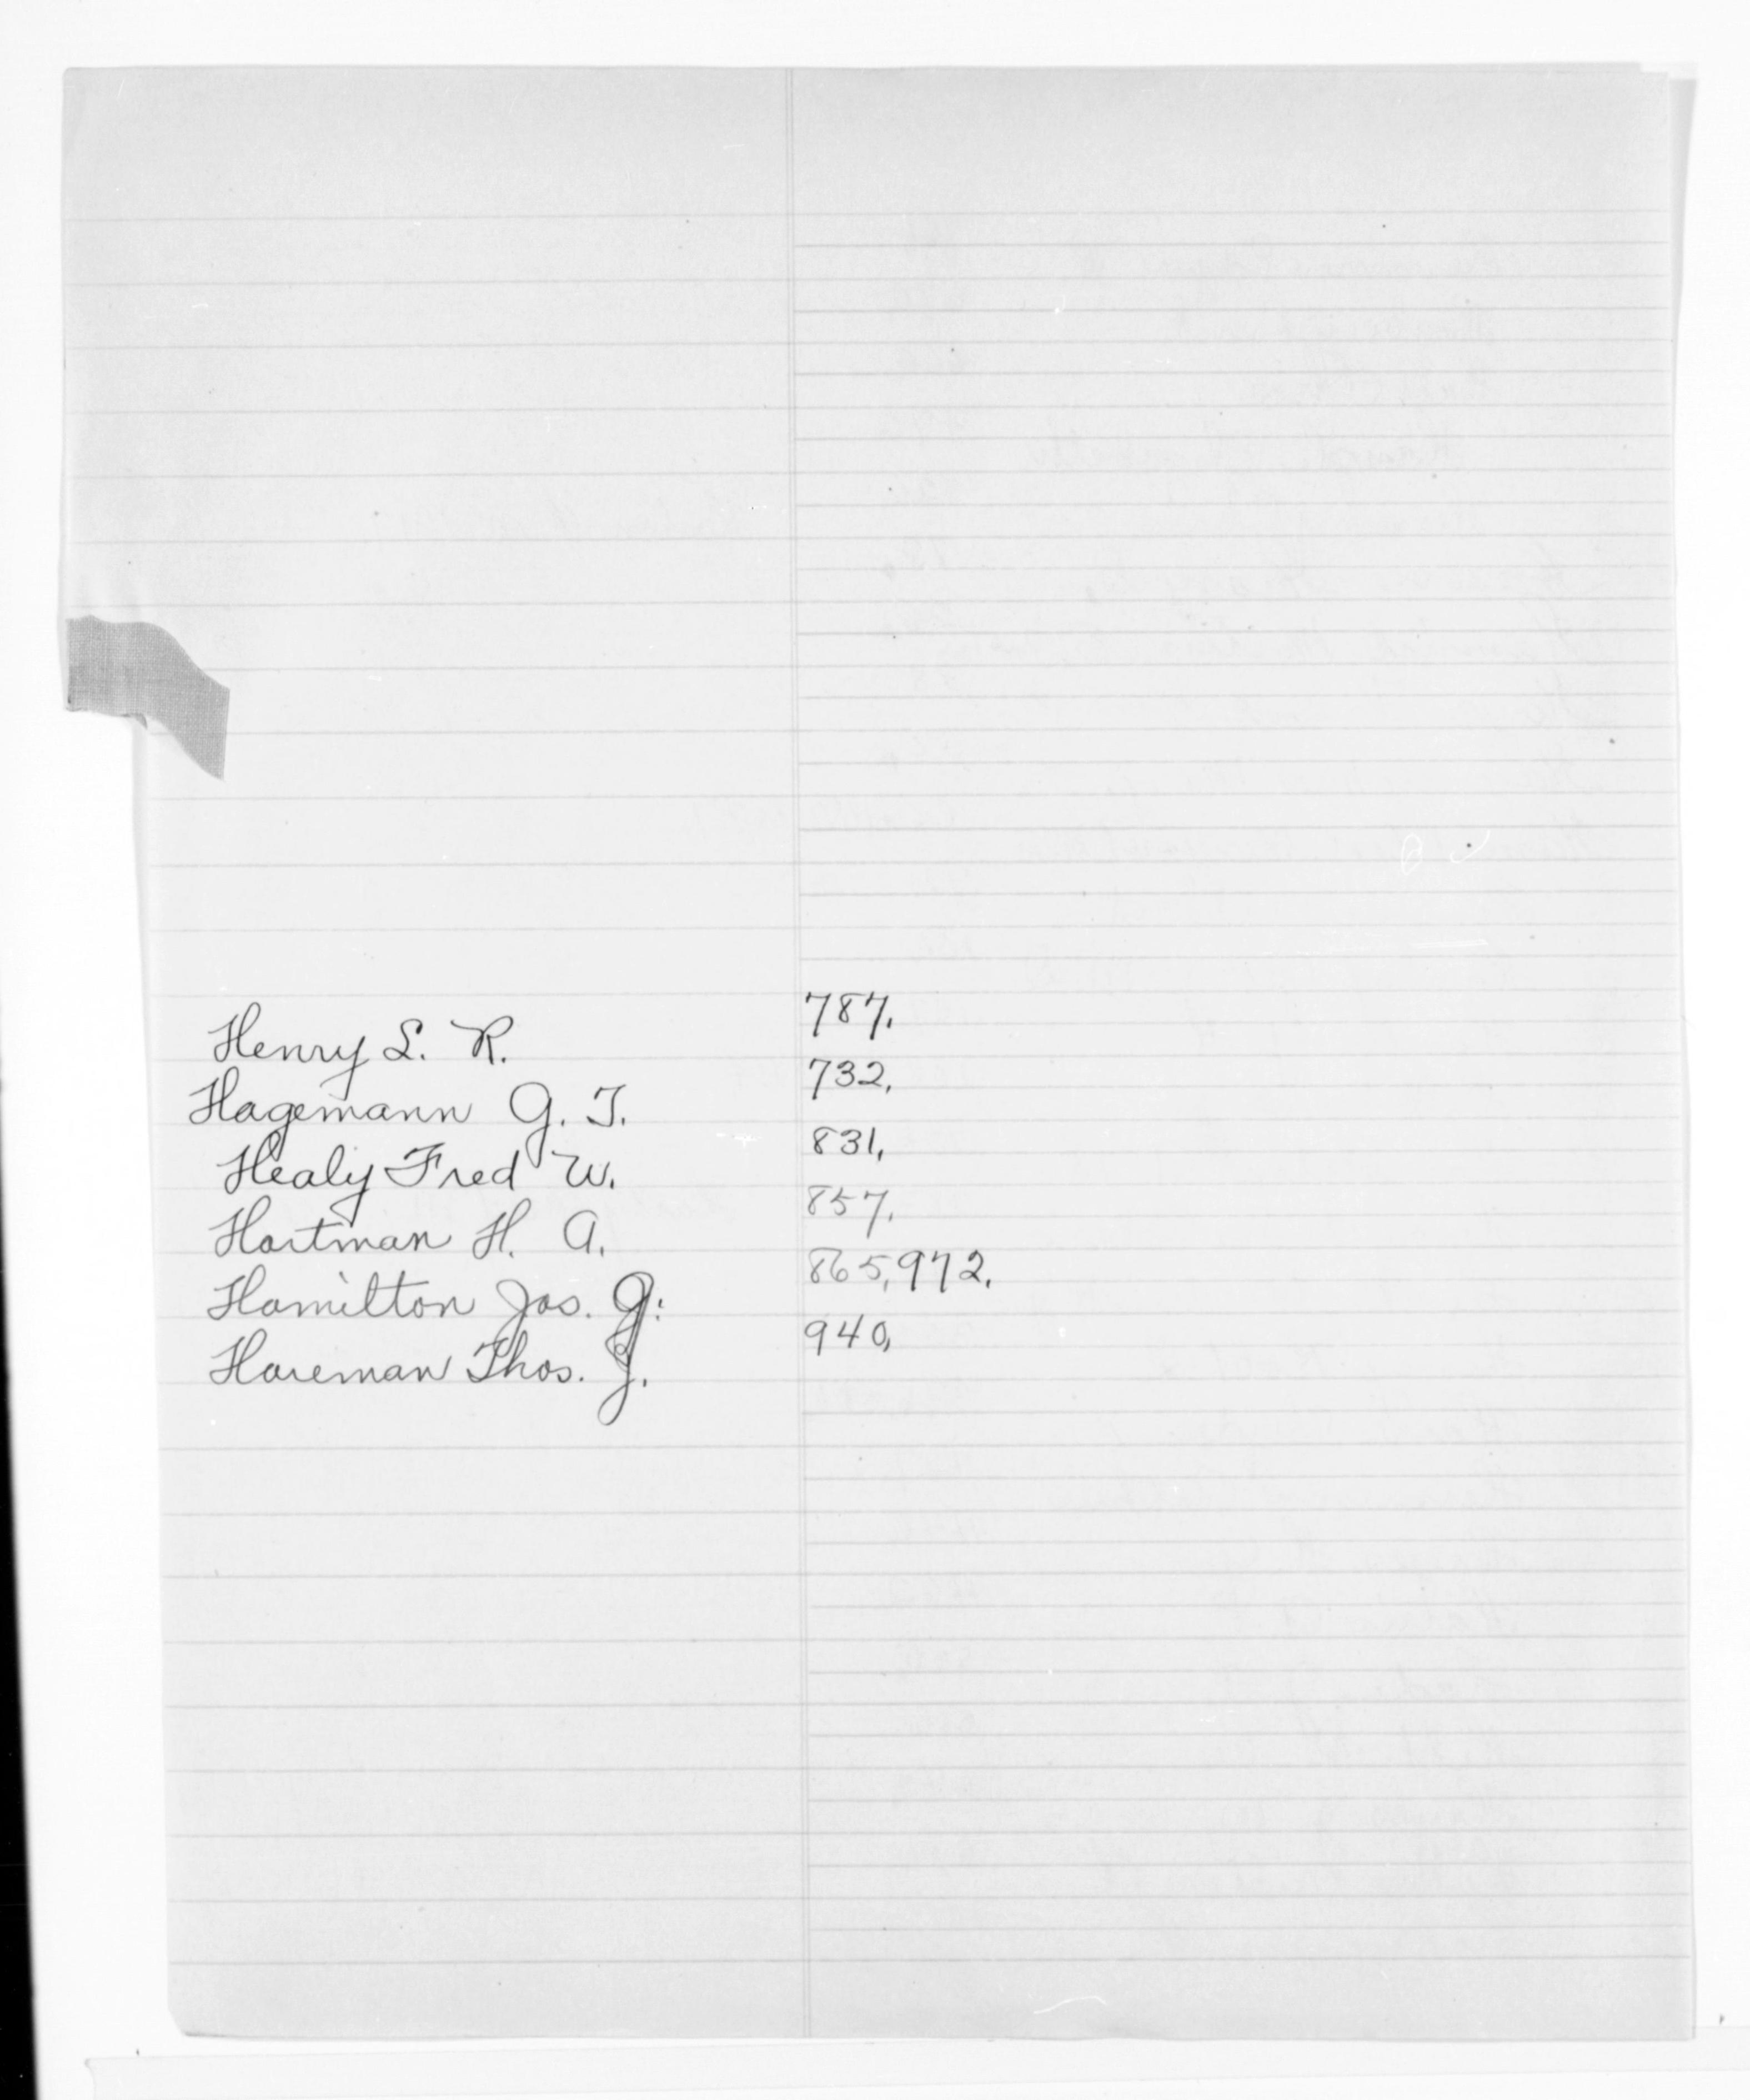 Henry L. R. 787.
Hagemann G. T. 732.
Healy Fred W. 831.
Hartman H. A. 857.
Hamilton Jas. J. 865, 972.
Hareman Thos. J. 940.